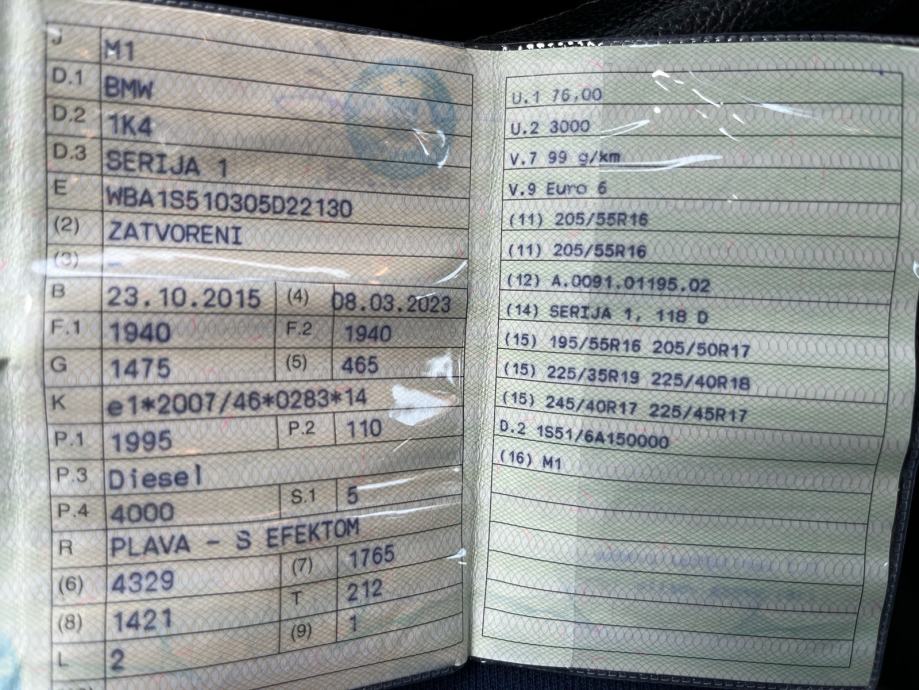 J M1
D.1 BMW
D.2 1K4
D.3 SERIJA 1
E WBA1S510305D22130
(2) ZATVORENI
(3) -
B 23.10.2015 (4) 08.03.2023
F.1 1940 F.2 1940
G 1475 (5) 465
K e1*2007/46*0283*14
P.1 1995 P.2 110
P.3 Diesel
P.4 4000 S.1 5
R PLAVA - S EFEKTOM
(6) 4329 (7) 1765
(8) 1421 T 212
L 2 (9) 1
U.1 76,00
U.2 3000
V.7 99 g/km
V.9 Euro 6
(11) 205/55R16
(11) 205/55R16
(12) A.0091.01195.02
(14) SERIJA 1, 118 D
(15) 195/55R16 205/50R17
(15) 225/35R19 225/40R18
(15) 245/40R17 225/45R17
D.2 1S51/6A150000
(16) M1